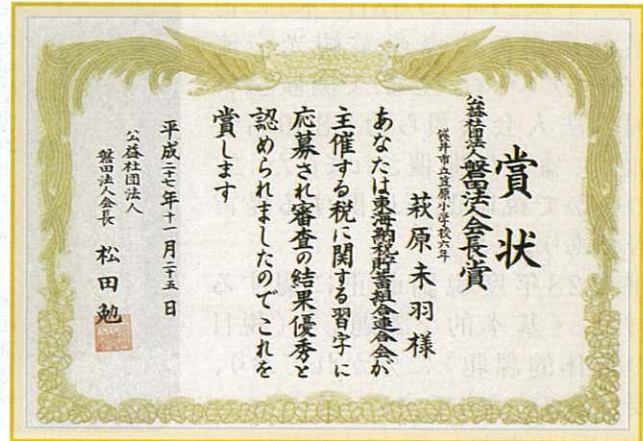 賞状
公益社団法人磐田法人会長賞
袋井市立笠原小学校六年
萩原未羽様
あなたは東海納税貯蓄組合連合会が
主催する税に関する習字に
応募され審査の結果優秀と
認められましたのでこれを
賞します
平成二十七年十一月二十五日
公益社団法人
磐田法人会長 松田勉